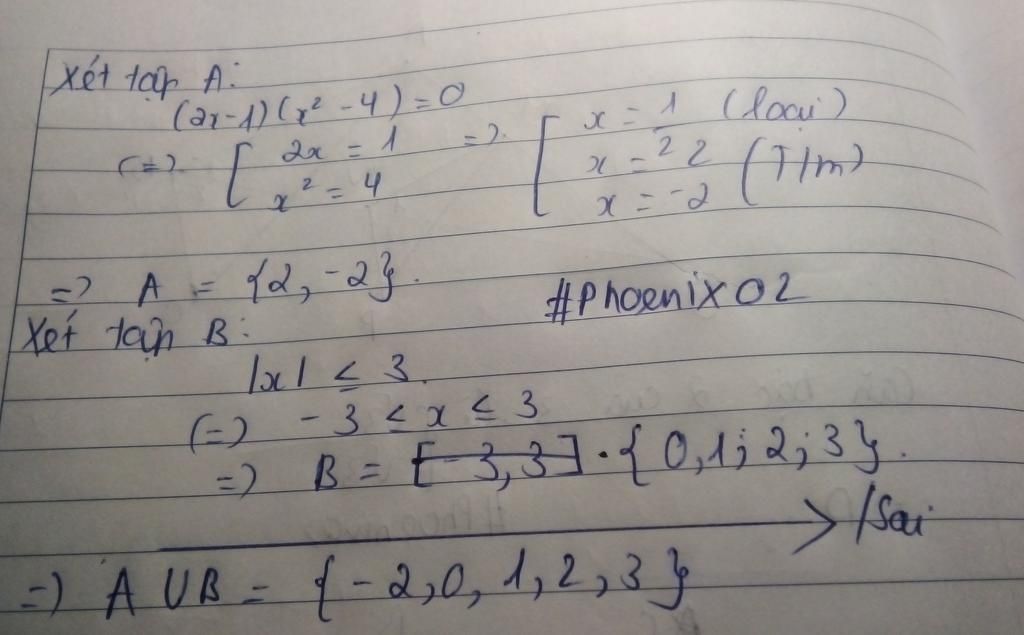 Xét tập A:
(2x-1)(x² - 4) = 0
(=) [ 2x = 1 => [ x = 1/2 (loại)
x² = 4 x = 2 (T/m)
x = -2
=> A = {2, -2}.
#Phoenix02
Xét tập B:
|x| ≤ 3.
(=) -3 ≤ x ≤ 3
=> B = [-3,3] . {0,1;2;3}.
/Sai
=) A ∪ B = {-2,0,1,2,3}